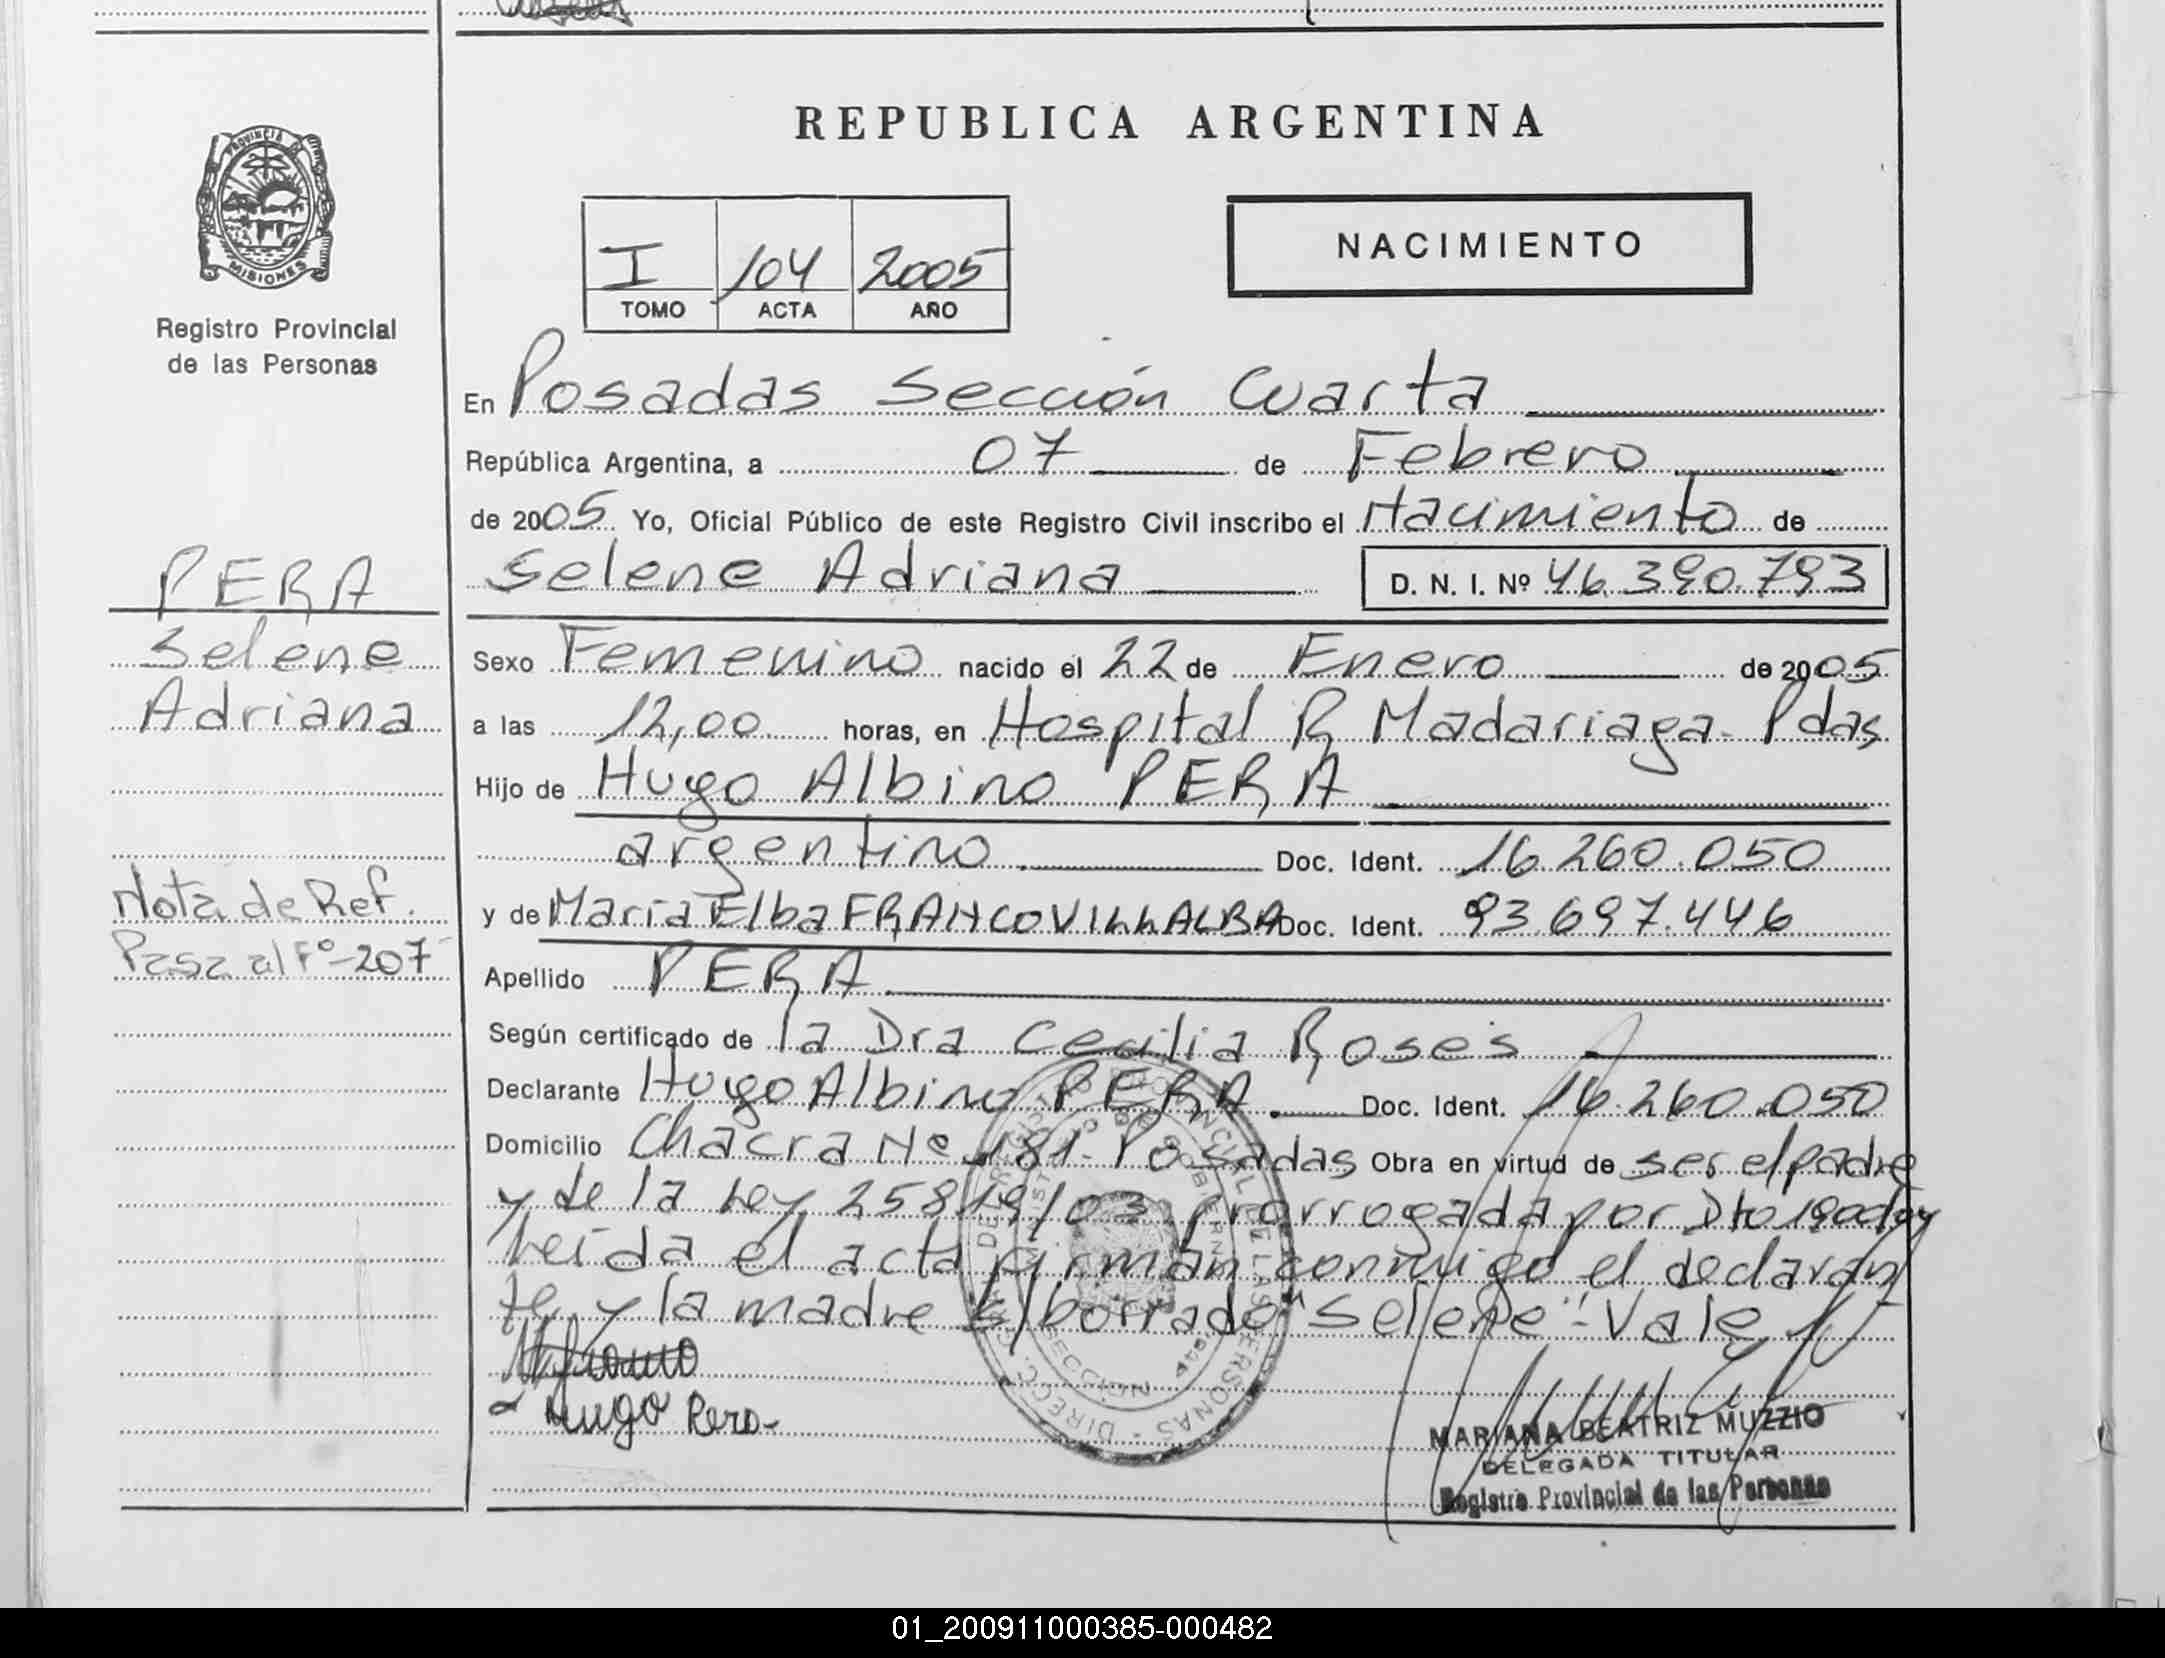 REPUBLICA ARGENTINA
PROVINCIA DE
MISIONES
Registro Provincial
de las Personas
I 104 2005
TOMO ACTA AÑO
NACIMIENTO
En Posadas Sección Cuarta
República Argentina, a 07 de Febrero
de 2005 Yo, Oficial Público de este Registro Civil inscribo el Nacimiento de
Selene Adriana D. N. I. Nº 46.390.793
PERA
Selene
Adriana
Sexo Femenino nacido el 22 de Enero de 2005
a las 12,00 horas, en Hospital R Madariaga- Pdas
Hijo de Hugo Albino PERA
argentino Doc. Ident. 16.260.050
y de Maria Elba FRANCO VILLALBA Doc. Ident. 93.697.446
Nota de Ref.
Pasa al Fº-207
Apellido PERA
Según certificado de la Dra Cecilia Roses
Declarante Hugo Albino PERA Doc. Ident. 16.260.050
Domicilio Chacra Nº 181- Posadas Obra en virtud de ser el padre
y de la Ley 25819/03 Prorrogada por Dto 1900/04
Leída el acta firman conmigo el declaran
te, y la madre S/borrado "Selene"- Vale
Hugo Pera-
DIRECC. GRAL. DE REGISTRO PROVINCIAL DE LAS PERSONAS
MINISTERIO DE GOBIERNO
SECCION 4ta
MARIANA BEATRIZ MUZZIO
DELEGADA TITULAR
Registro Provincial de las Personas
01_200911000385-000482